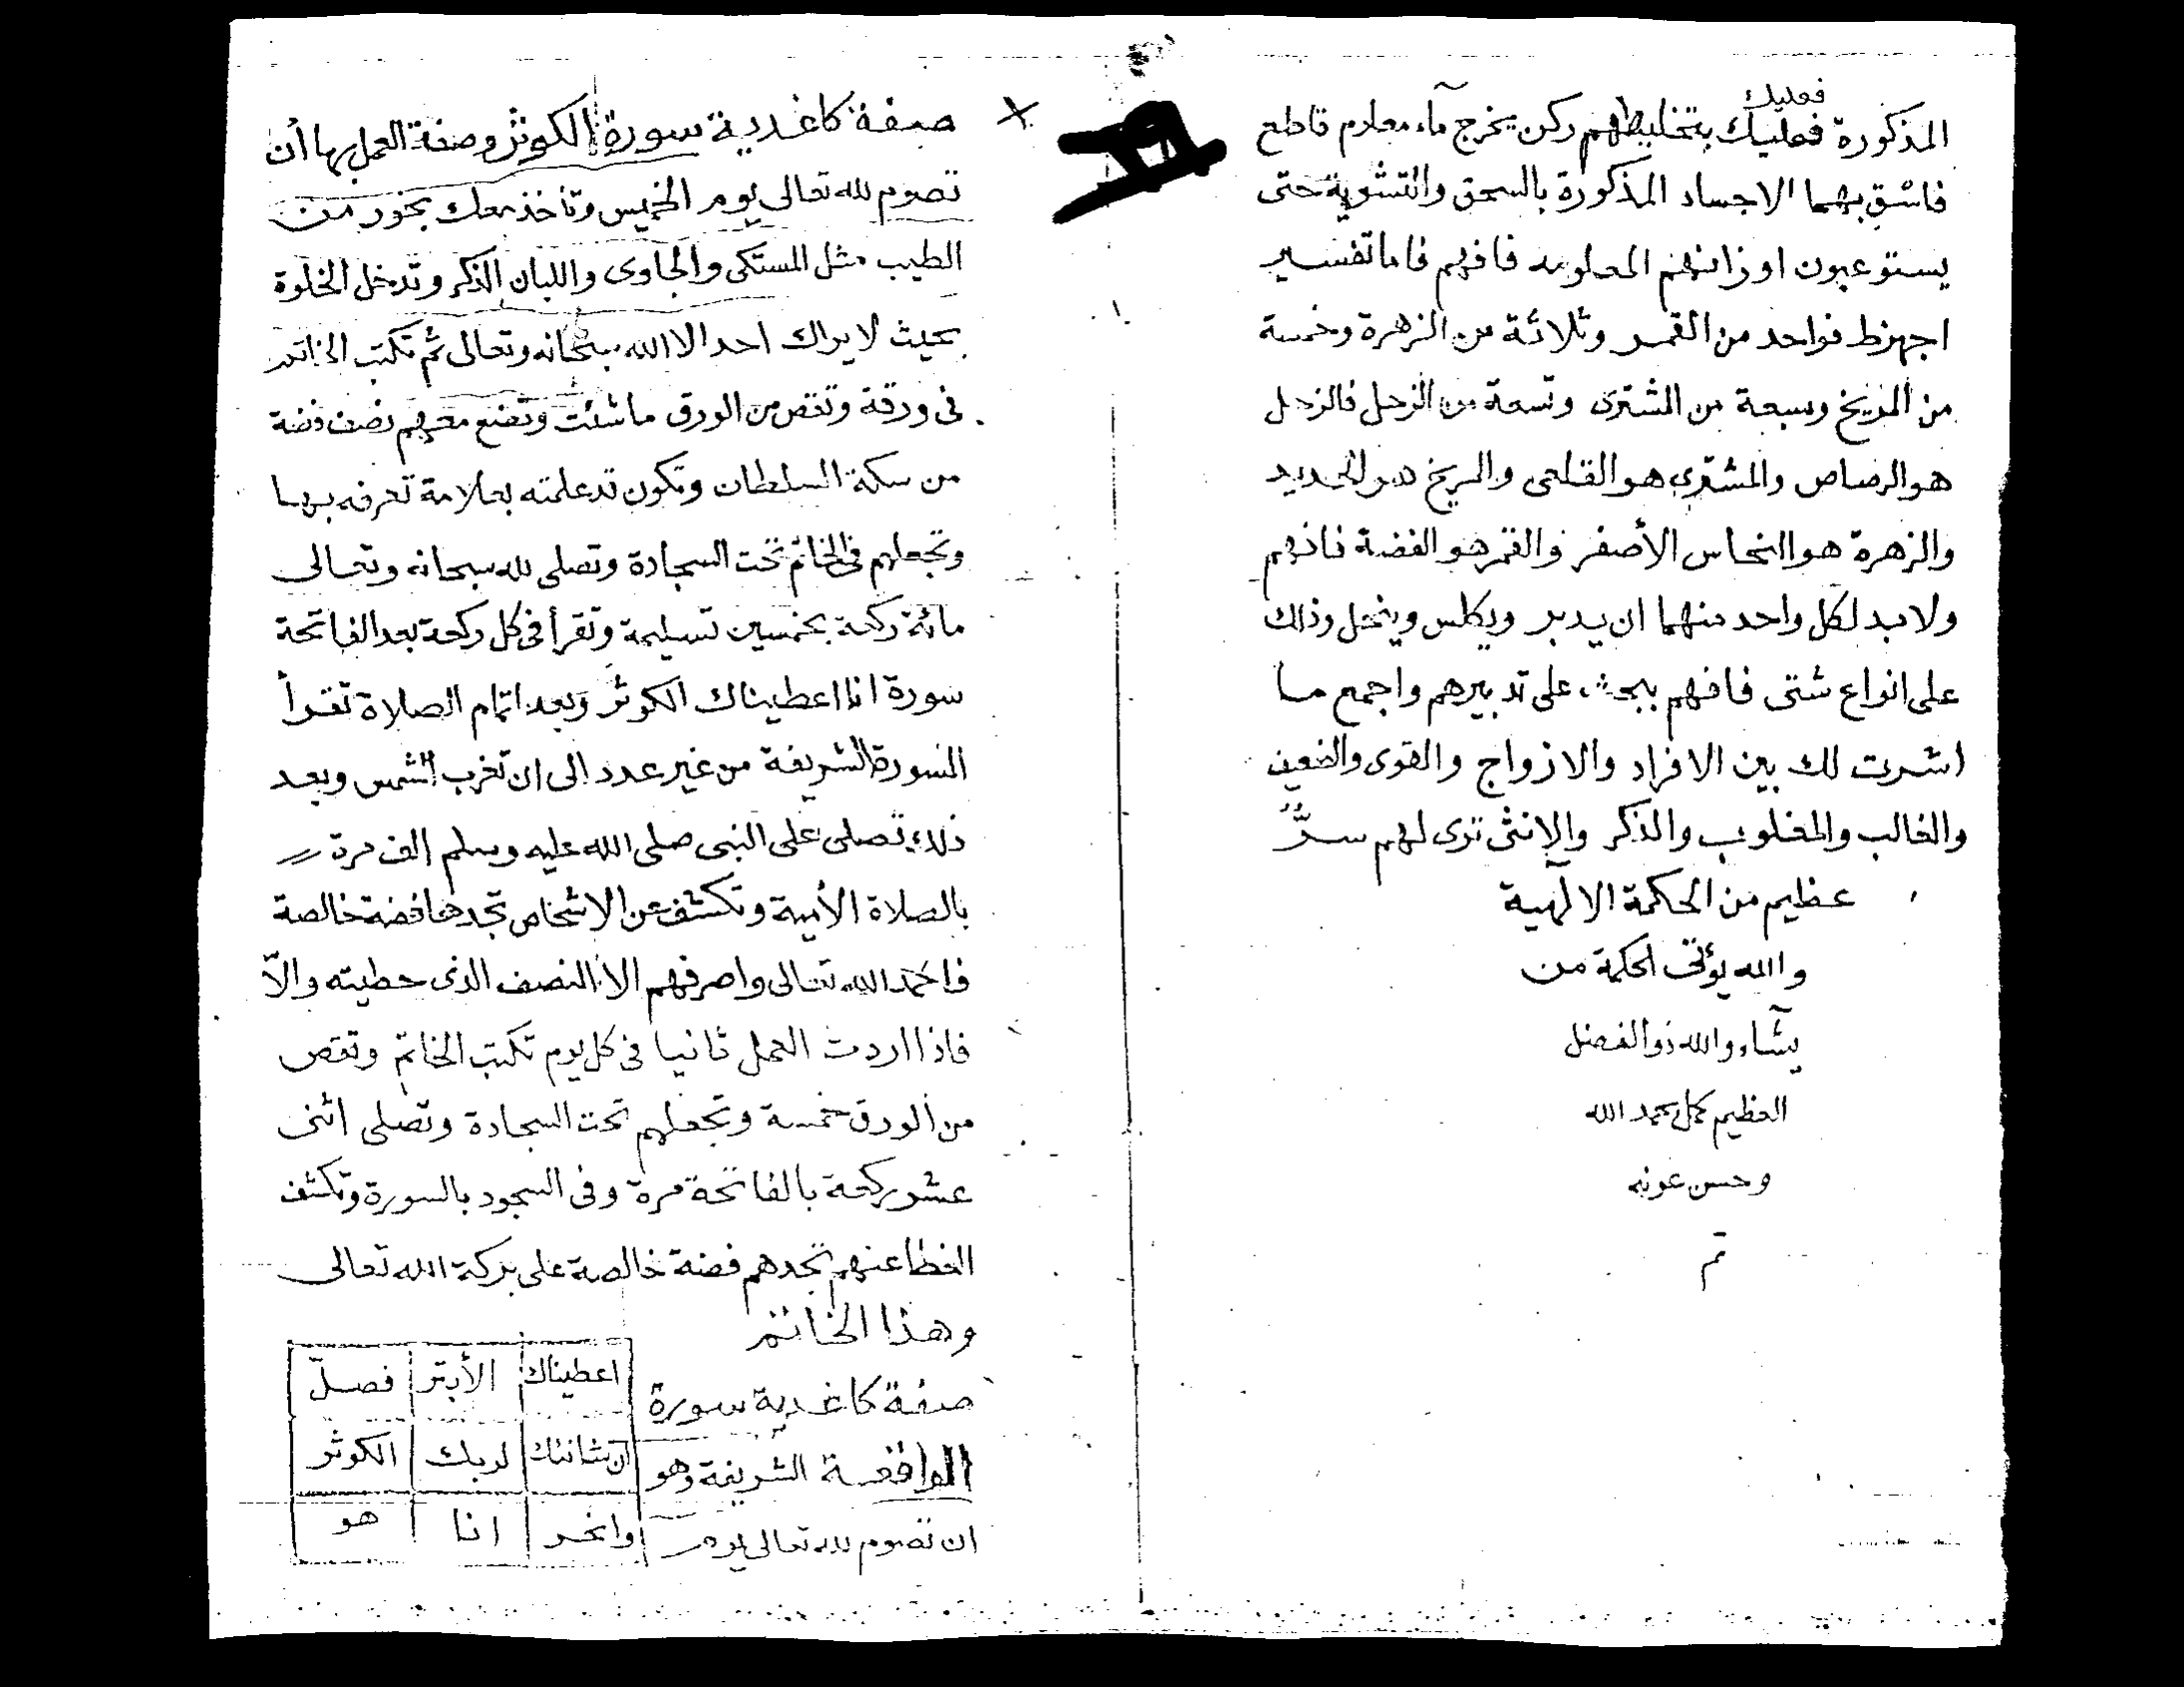 فعليك
المذكورة فعليك بتخليطهم ركن يخرج مآء معلوم قاطع
فاسق بهما الاجساد المذكورة بالسحق والتشوية حتى
يستوعبون اوزانهم المعلومه فافهم فاما تفسير
اجهزط فواحد من القمر وثلاثة من الزهرة وخمسة
من المريخ وسبعة من المشترى وتسعة من الزحل فالزحل
هو الرصاص والمشترى هو القلعى والمريخ هو الحديد
والزهرة هو النحاس الأصفر والقمر هو الفضة فافهم
ولا بد لكل واحد منهما ان يدبر ويكلس وينحل وذلك
على انواع شتى فافهم بحث على تدبيرهم واجمع ما
اشرت لك بين الافراد والازواج والقوى والضعيف
والغالب والمغلوب والذكر والانثى ترى لهم سرٌّ
عظيم من الحكمة الالٓهية
والله يؤتى الحكمة من
يشآء والله ذو الفضل
العظيم كمل بحمد الله
وحسن عونه
تم
صفة كاغدية سورة الكوثر وصفة العمل بها أن
تصوم لله تعالى يوم الخميس وتأخذ معك بخور من
الطيب مثل المستكى والجاوى واللبان الذكر وتدخل الخلوة
بحيث لا يراك احد الا الله سبحانه وتعالى ثم تكتب الخاتم
فى ورقة وتقص من الورق ما شئت وتضع معهم نصف فضة
من سكة السلطان وتكون قد علمته بعلامة تعرفه بها
وتجعلهم فى الخاتم تحت السجادة وتصلى لله سبحانه وتعالى
مائة ركعة بخمسين تسليمة وتقرأ فى كل ركعة بعد الفاتحة
سورة انا اعطيناك الكوثر وبعد اتمام الصلاة تقرأ
السورة الشريفة من غير عدد الى ان تغرب الشمس وبعد
ذلك تصلى على النبى صلى الله عليه وسلم الف مرة
بالصلاة الأمية وتكشف عن الاشخاص تجدها فضة خالصة
فاحمد الله تعالى واصرفهم الا النصف الذى حطيته والاّ
فاذا اردت العمل ثانيا فى كل يوم تكتب الخاتم وتقص
من الورق خمسة وتجعلهم تحت السجادة وتصلى اثنى
عشر ركعة بالفاتحة مرة وفى السجود بالسورة وتكشف
الغطا عنهم تجدهم فضة خالصة على بركة الله تعالى
وهذا الخاتم
اعطيناك الأبتر فصلّ
ان شانئك لربك الكوثر
وانحر انا هو
صفة كاغدية سورة
الواقعة الشريفة وهو
ان تصوم لله تعالى يوم